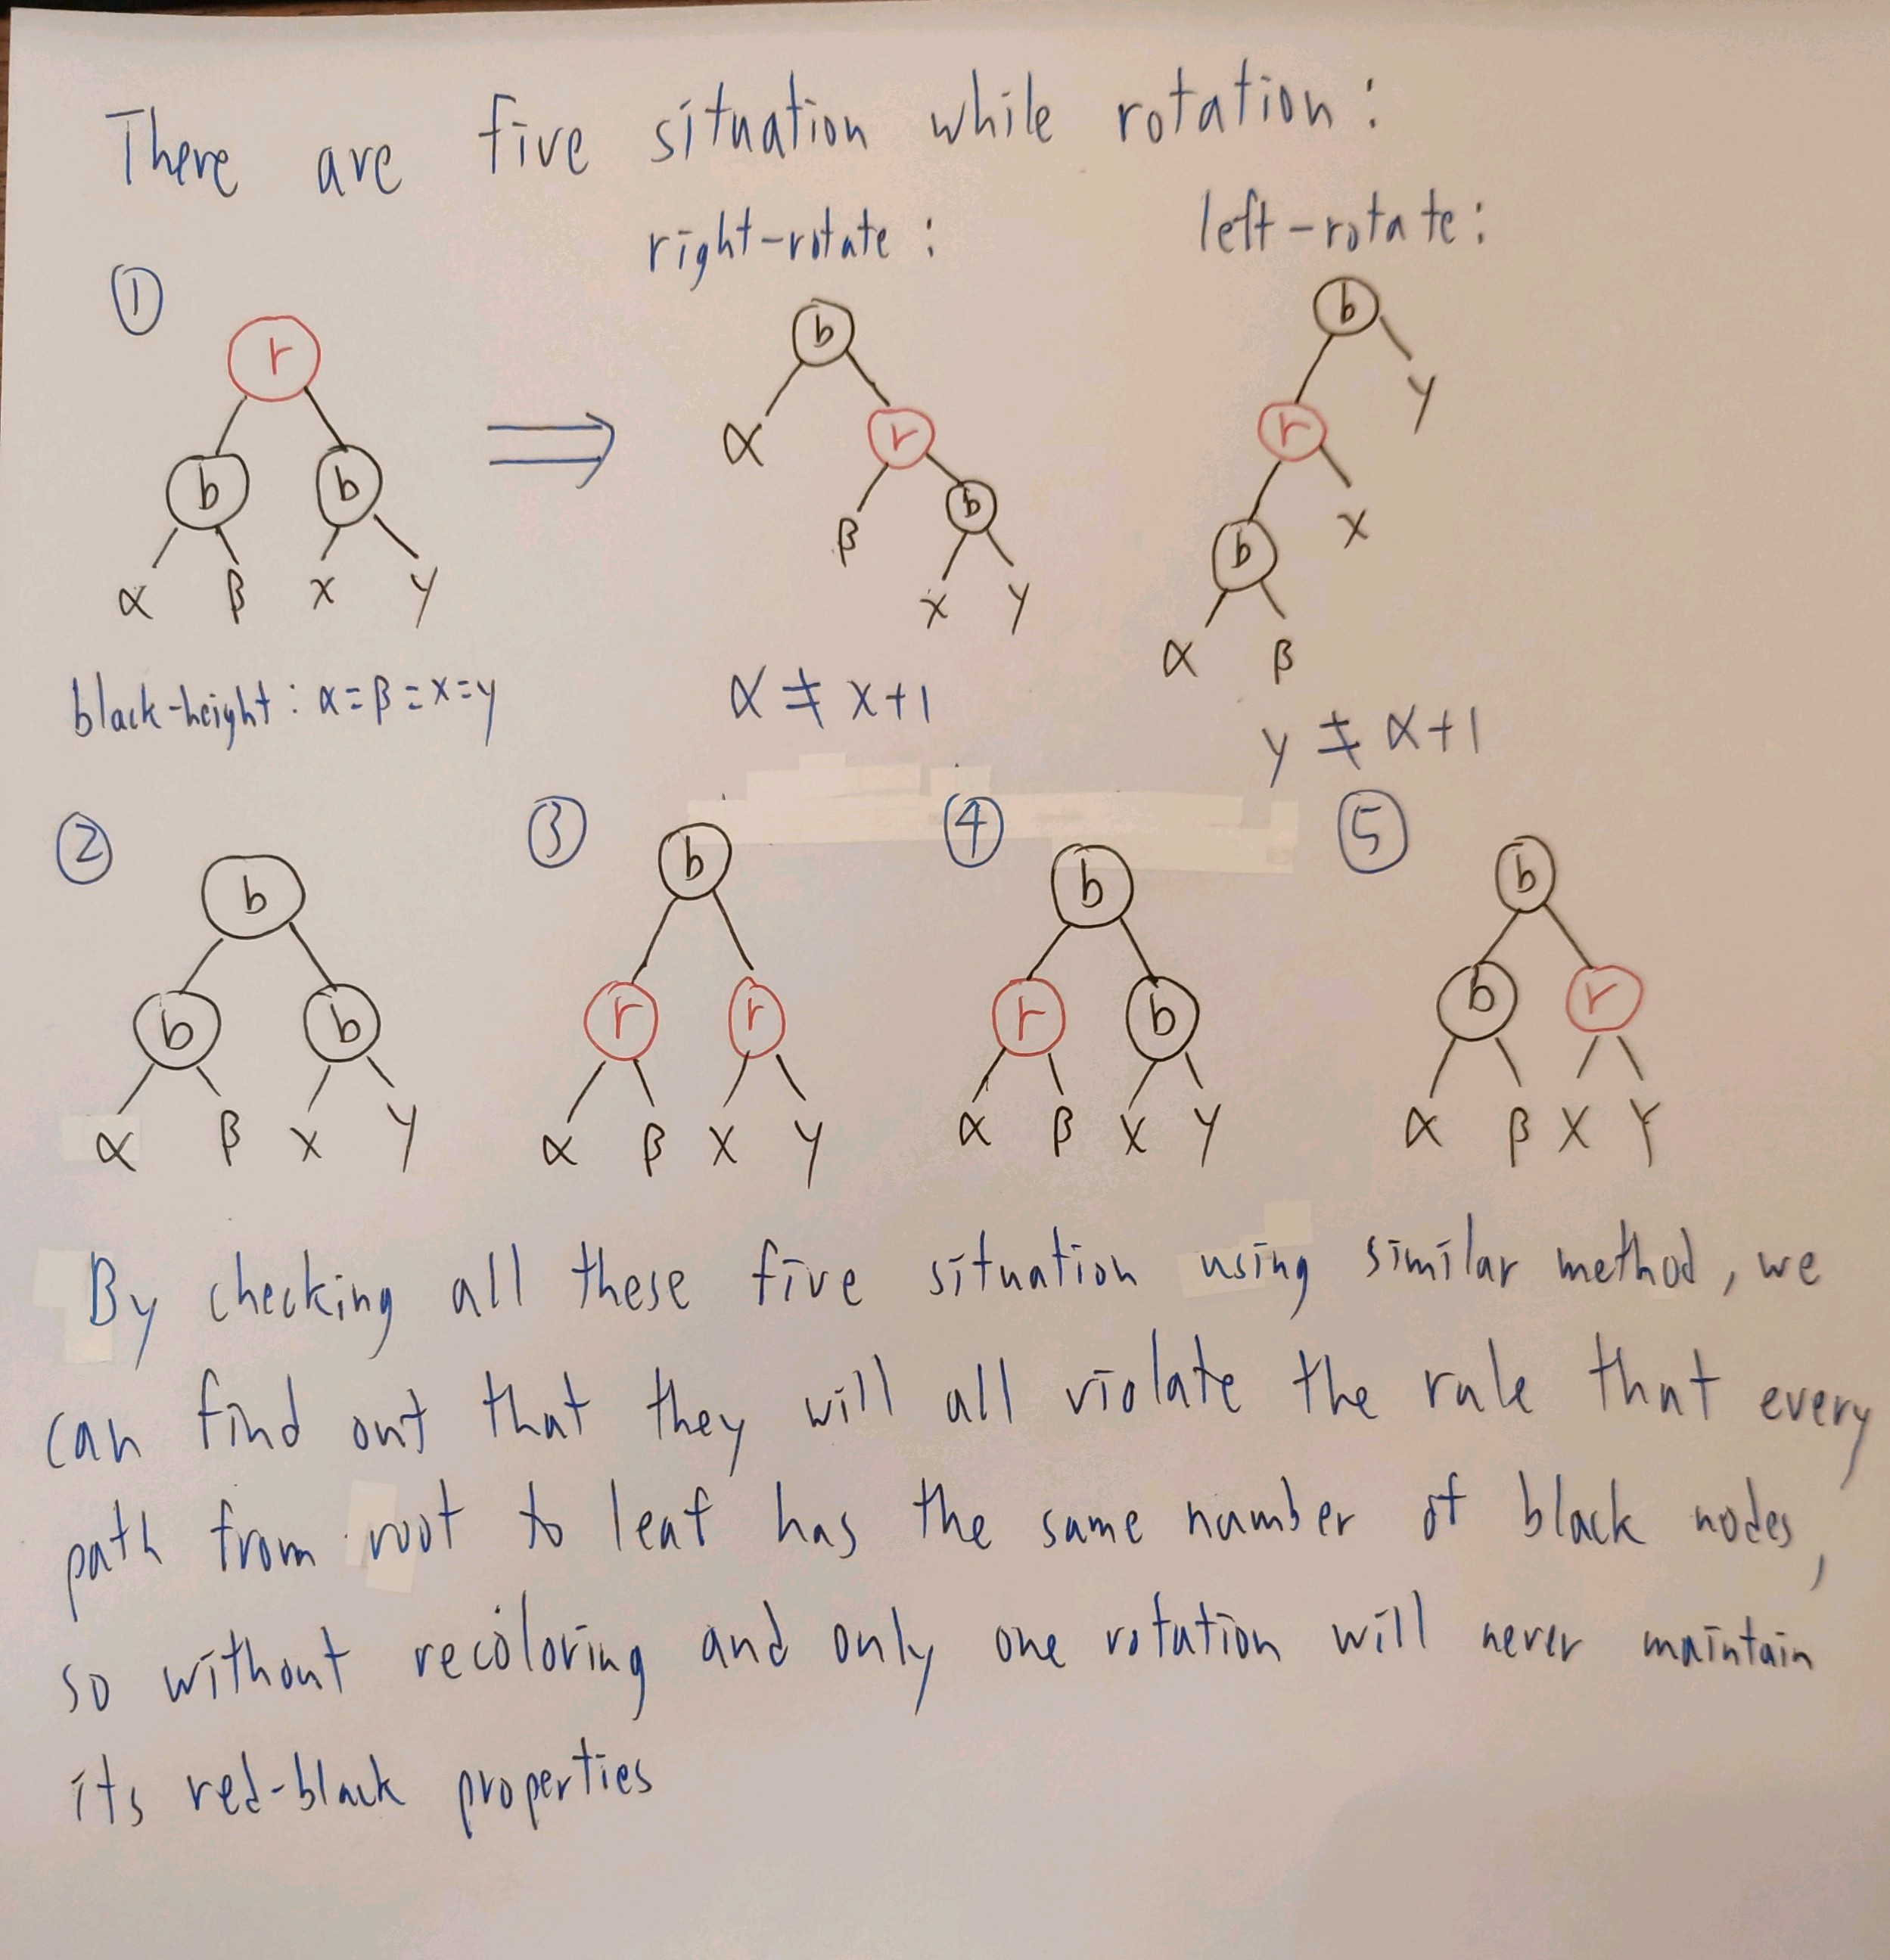 There are five situation while rotation:
right-rotate: left-rotate:
①
r b b
b b α r r y
α β x y β b b x
x y α β
black-height: α=β=x=y α≠x+1 y≠α+1
② ③ ④ ⑤
b b b b
b b r r r b b r
α β x y α β x y α β x y α β x y
By checking all these five situation using similar method, we
can find out that they will all violate the rule that every
path from root to leaf has the same number of black nodes,
so without recoloring and only one rotation will never maintain
its red-black properties